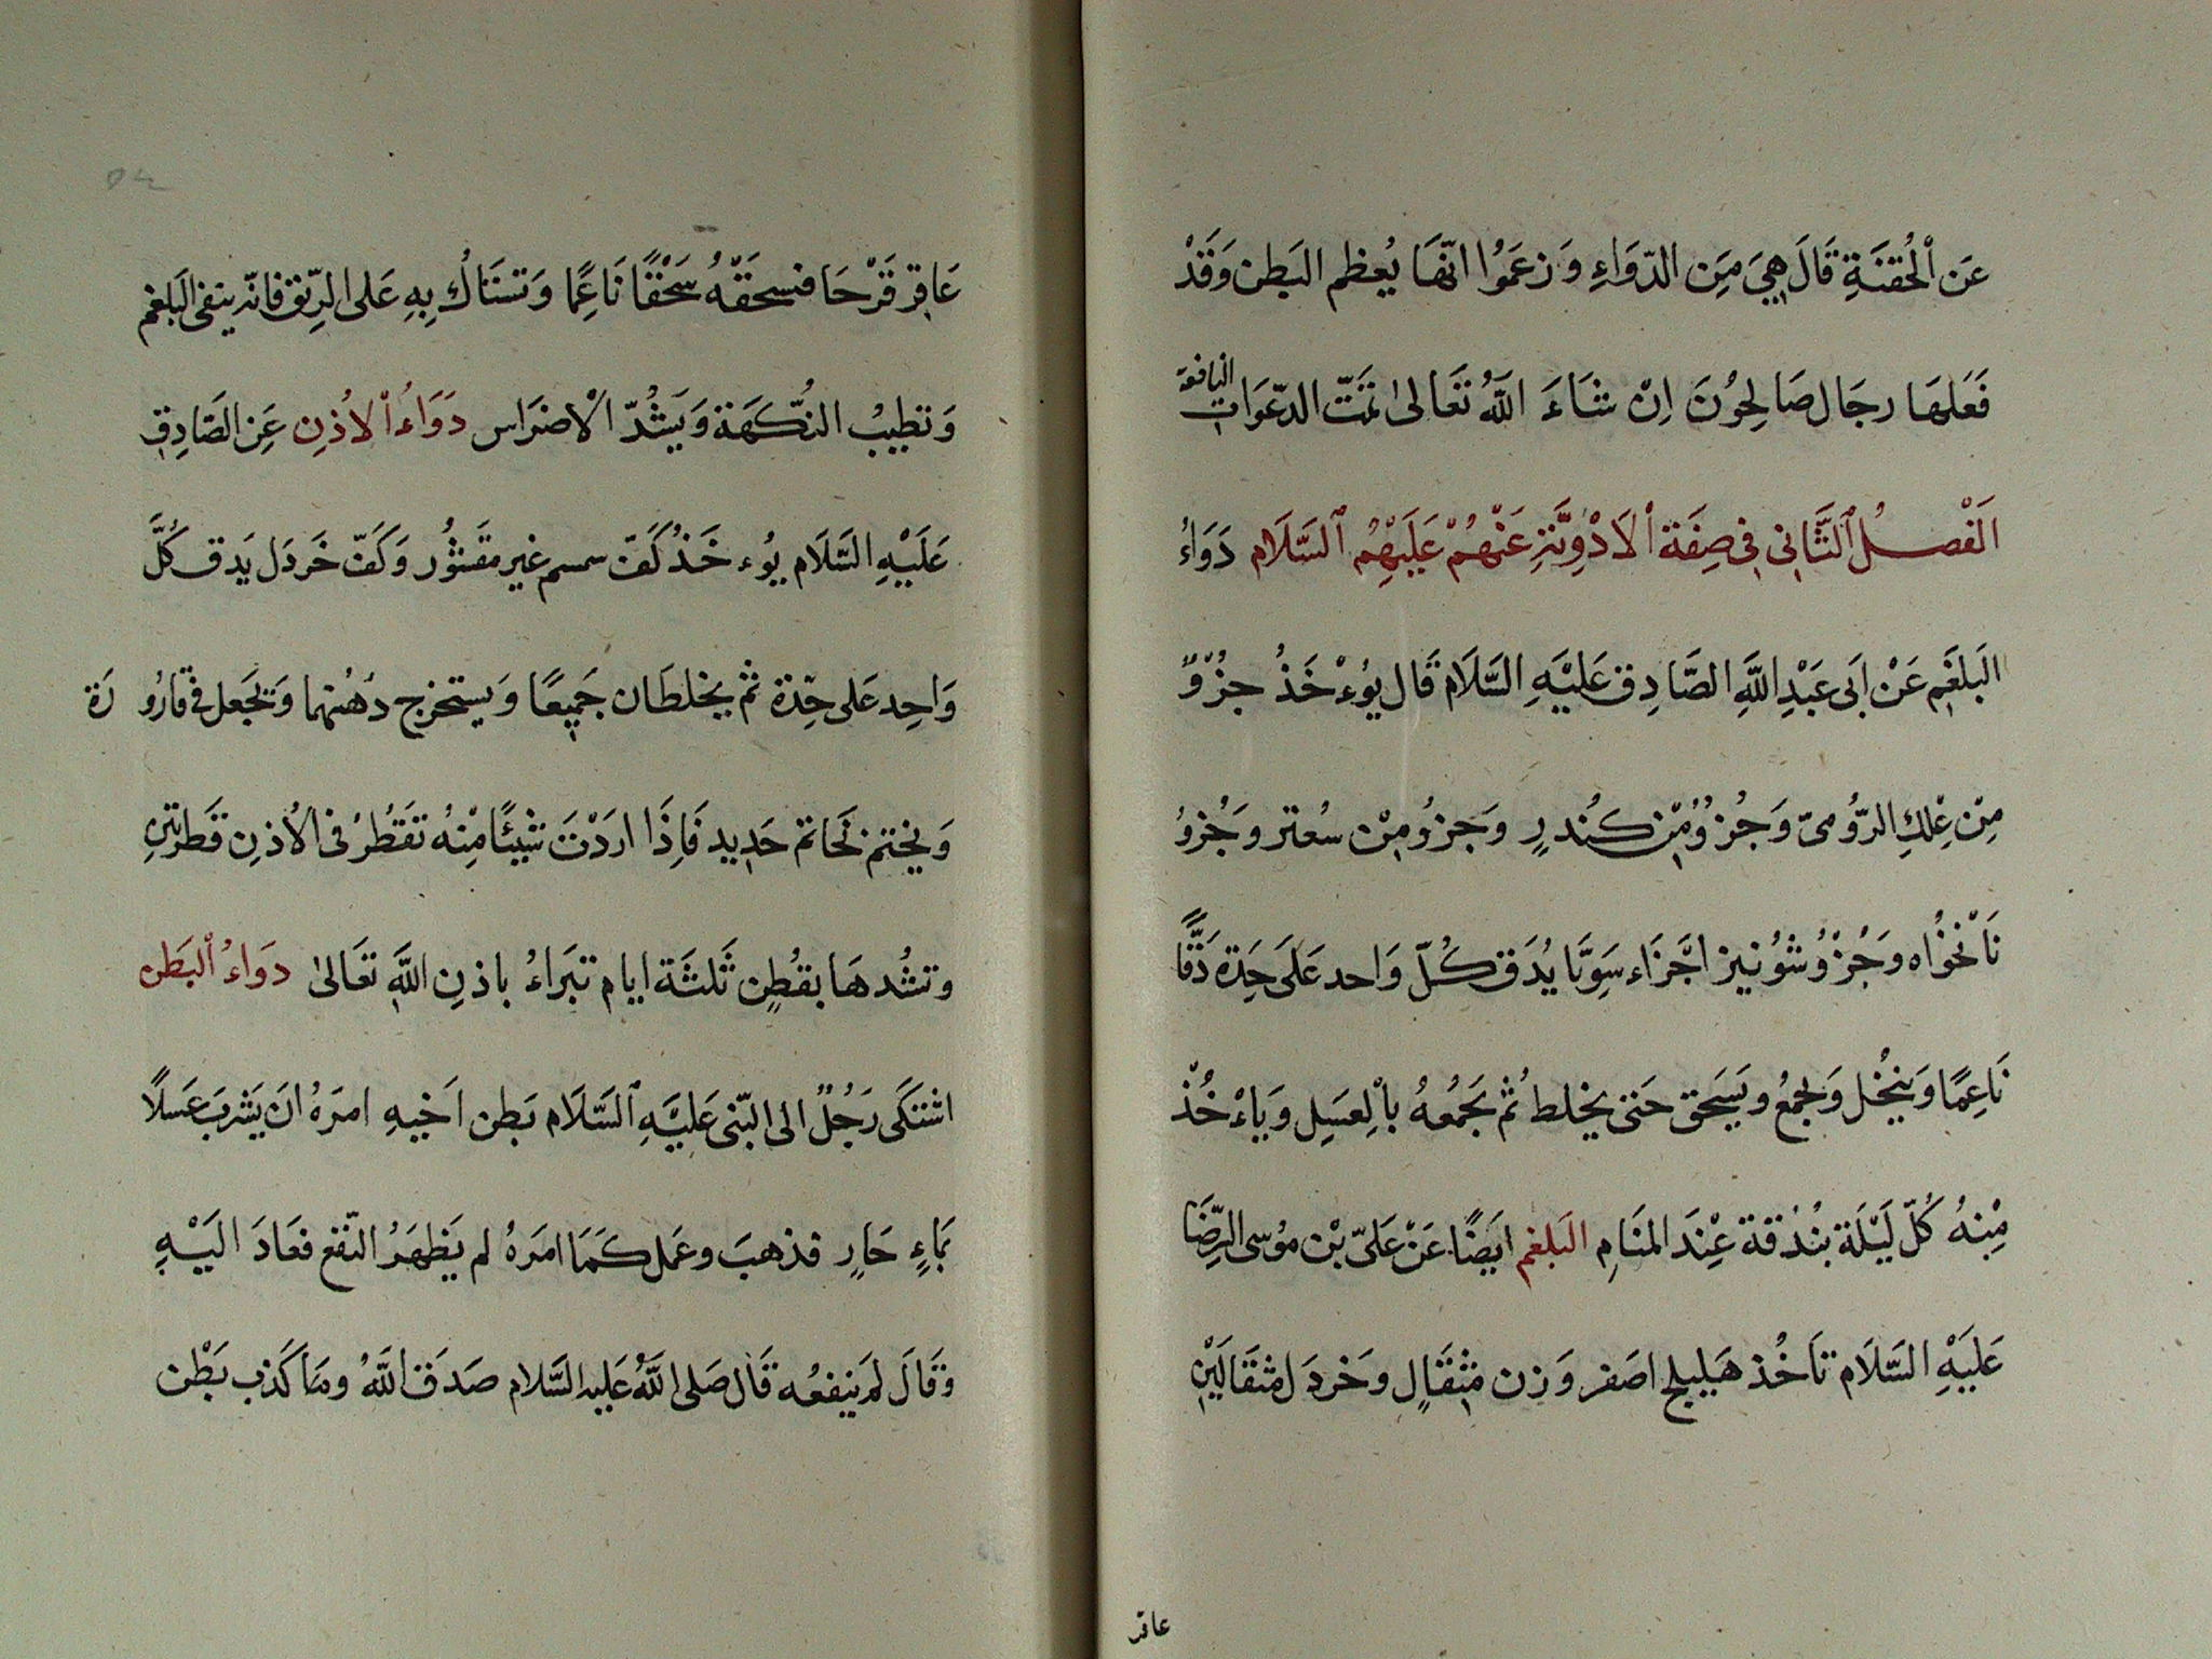 عَنِ ٱلْحُقنَةِ قَالَ هِيَ مِنَ الدّوَاءِ وَزعَمُوا انّهَا يُعظم البَطن وَقَدْ
فَعَلهَا رجَال صَالِحُونَ اِنْ شَاءَ اللّٰهُ تعَالىٰ تمَتّ الدّعَوَات النافعة
اَلْفصلُ ٱلثَّانِى فِى صِفَة ٱلاَدْوِيَّةِ عَنْهُمْ عَلَيْهِمُ ٱلسَّلَام دَوَاءُ
البَلغَمِ عَنْ اَبى عَبْدِ اللَّهِ الصَّادِق عَليْهِ السَّلَام قَال يُوءْخَذُ جزُوٌ
مِنْ عِلكِ الرّوُمىّ وَجُزوُ مِّن كُندرٍ وَجزوُ مِنْ سُعتر وَجُزوُ
نَانْخوُاه وَجُزْوُ شوُنيز اجَّزَاء سَوِيَّا يُدَق كُلّ وَاحد عَلَى حِدَة دَقًّا
نَاعِمًا وَينخُل وَيجمَعُ وَيَسَحق حَتىٰ يخلط ثُم يَجَمُعهُ بالِعسَلِ وَيَاءْخُذْ
مِّنهُ كُلّ لَيْلَة بنُدُقة عِنْدَ المنَامِ البَلغم ايَضًا عَنْ عَلىّ بْن موُسى الرِّضَا
عَليَهِ السَّلَام تاَخُذ هَليلج اصَفر وَزن مثِقَالٍ وَخَردَل مثقَالَيْنِ
عاقر
عَاقِر قَرْحَا فتسحَقَهُ سَحْقًا نَاعِمًا وَتستَاكُ بِهِ عَلى الرِّيق فانّه ينفى البَلغم
وَتطيبُ النُّكهَة وَيَشُدّ الْاضرَاس دَوَاءُ ٱلاُذنِ عَنِ الصَّادِق
عَلَيْهِ السَّلَام يُوءخَذُ كَفّ سمسم غير مقَشوُر وَكَفّ خَردَل يَدق كُلَّ
وَاحِد عَلى حِدّة ثم يخلطَان جَمِيعًا وَيستخرج دُهنُهما وَتجَعل فى قارُورَة
وَيختم نجَاتم حَديد فَاِذَا اردْتَ شيئًا مِنهُ تقَطُرُ فى الاُذنِ قَطرتَينِ
وتشُدهَا بقُطنٍ ثَلثَة ايام تبَراءُ باذنِ اللَّهِ تعَالىٰ دوَاءُ ٱلبَطن
اشتكَى رَجُلٌ الى النّبى عَليَّهِ ٱلسَّلَام بَطن اَخيهِ امرَهُ انَ يَشربَ عَسلًا
بمَاءٍ حَارٍ فذهبَ وعَمل كَمَا امَرَهُ لم يَظهَرُ النّفع فعَادَ اليَهِ
وَقَالَ لمَ يَنفعُه قَال صَلى اللَّهُ عَليه السَّلام صَدَق اللَّهُ ومَا كَذب بَطْن